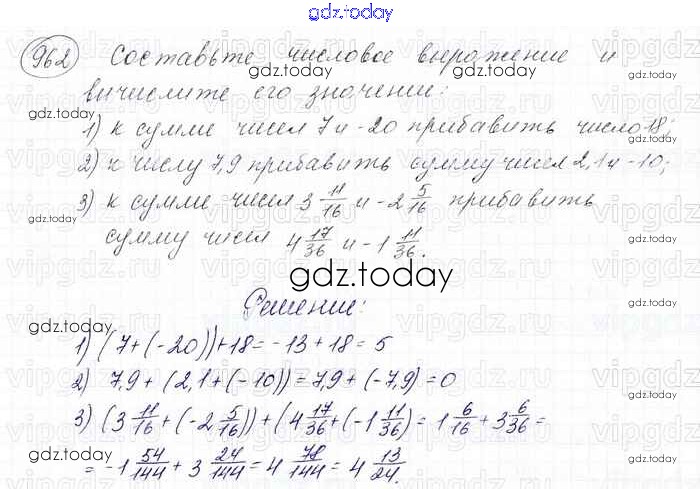 gdz.today
962 Составьте числовое выражение и
gdz.today gdz.today
вичислите его значение:
gdz.today
1) к сумме чисел 7 и -20 прибавить число 18;
2) к числу 7,9 прибавить сумму чисел 2,1 и -10;
3) к сумме чисел 3 11/16 и -2 5/16 прибавить
gdz.today gdz.today
сумму чисел 4 17/36 и -1 11/36.
gdz.today
Решение:
gdz.today gdz.today
1) (7+(-20))+18 = -13+18 = 5
2) 7,9 + (2,1+(-10)) = 7,9 + (-7,9) = 0
gdz.today gdz.today
3) (3 11/16 + (-2 5/16)) + (4 17/36 + (-1 11/36) = 1 6/16 + 3 6/36 =
= -1 54/144 + 3 24/144 = 4 78/144 = 4 13/24.
gdz.today gdz.today